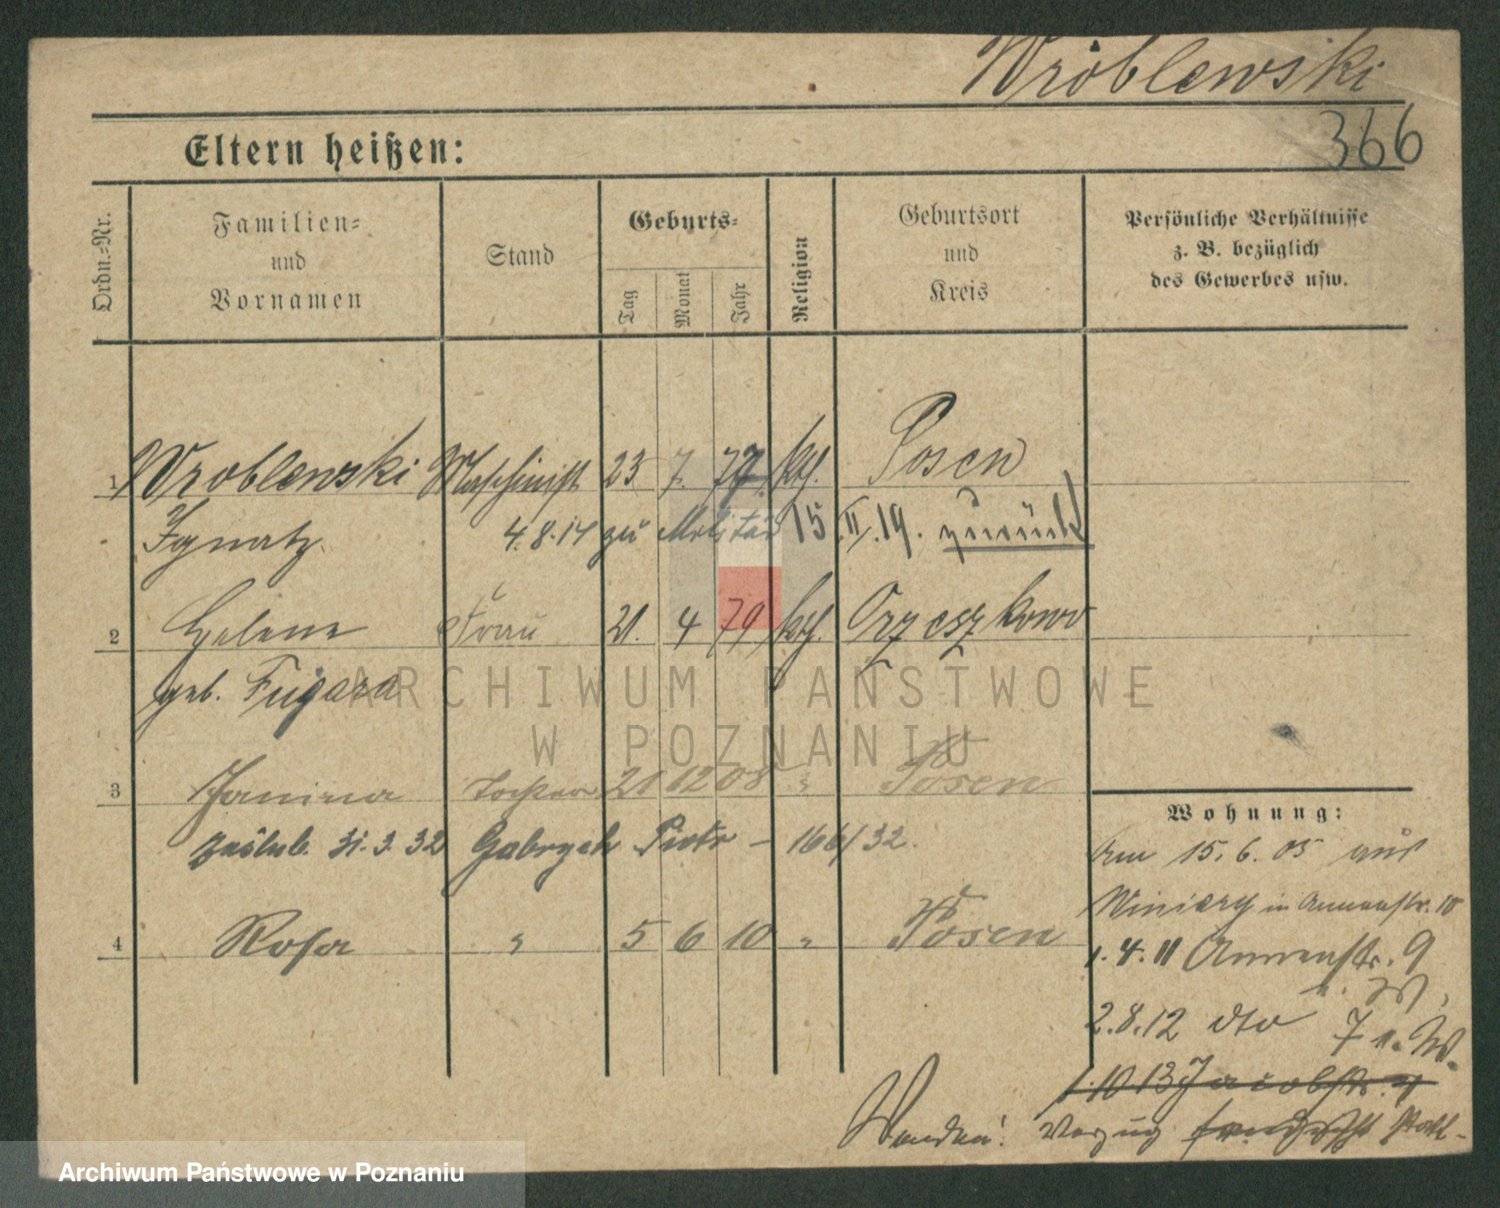 Wróblewski
366
Eltern heißen:
Ordn.-Nr.
Familien-
und
Vornamen
Stand
Geburts-
Tag
Monat
Jahr
Religion
Geburtsort
und
Kreis
Persönliche Verhältnisse
z. B. bezüglich
des Gewerbes usw.
1 Wroblewski Maschinist 23 7. 77 kth. Posen
Ignatz 4.8.14 zu Militär 15.II.19. zurück
2 Helene Frau 21. 4 79 kth. Orzeszkowo
geb. Fugara
ARCHIWUM PAŃSTWOWE
W POZNANIU
3 Janina Tochter 21 12 08 " Posen
zaślub. 31.3.32 Gabrych Piotr – 166/32.
4 Rosa " 5 6 10 " Posen
Wohnung:
Am 15.6.05 aus
Winiary in Annenstr. 10
1.4.11 Annenstr. 9
2.8.12 dto 7 n. W.
1.10 13 Jacobstr.
Wenden! Verzug
Archiwum Państwowe w Poznaniu